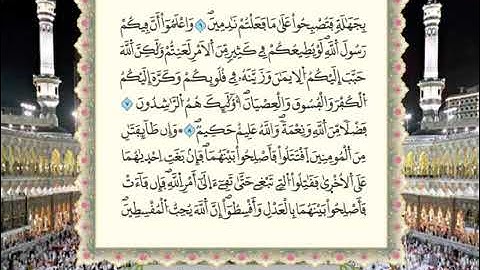 بِجَهَٰلَةٖ فَتُصْبِحُواْ عَلَىٰ مَا فَعَلْتُمْ نَٰدِمِينَۖ ٦ وَاعْلَمُوٓاْ أَنَّ فِيكُمْ
رَسُولَ اَللَّهِۖ لَوْ يُطِيعُكُمْ فِے كَثِيرٖ مِّنَ اَلَامْرِ لَعَنِتُّمْ وَلَٰكِنَّ اَللَّهَ
حَبَّبَ إِلَيْكُمُ اُلِايمَٰنَ وَزَيَّنَهُۥ فِے قُلُوبِكُمْ وَكَرَّهَ إِلَيْكُمُ
اُلْكُفْرَ وَالْفُسُوقَ وَالْعِصْيَانَۖ أُوْلَٰٓئِكَ هُمُ اُلرَّٰشِدُونَ ٧
فَضْلاٗ مِّنَ اَللَّهِ وَنِعْمَةٗۖ وَاللَّهُ عَلِيمٌ حَكِيمٞۖ ٨ وَإِن طَآئِفَتَٰنِ
مِنَ اَلْمُومِنِينَ اَقْتَتَلُواْ فَأَصْلِحُواْ بَيْنَهُمَاۖ فَإِنۢ بَغَتِ اِحْدَيٰهُمَا
عَلَى اَلُاخْرَىٰ فَقَٰتِلُواْ اُلتِے تَبْغِے حَتَّىٰ تَفِےٓءَ اِلَىٰٓ أَمْرِ اِللَّهِۖ فَإِن فَآءَتْ
فَأَصْلِحُواْ بَيْنَهُمَا بِالْعَدْلِ وَأَقْسِطُوٓاْۖ إِنَّ اَللَّهَ يُحِبُّ اُلْمُقْسِطِينَۖ